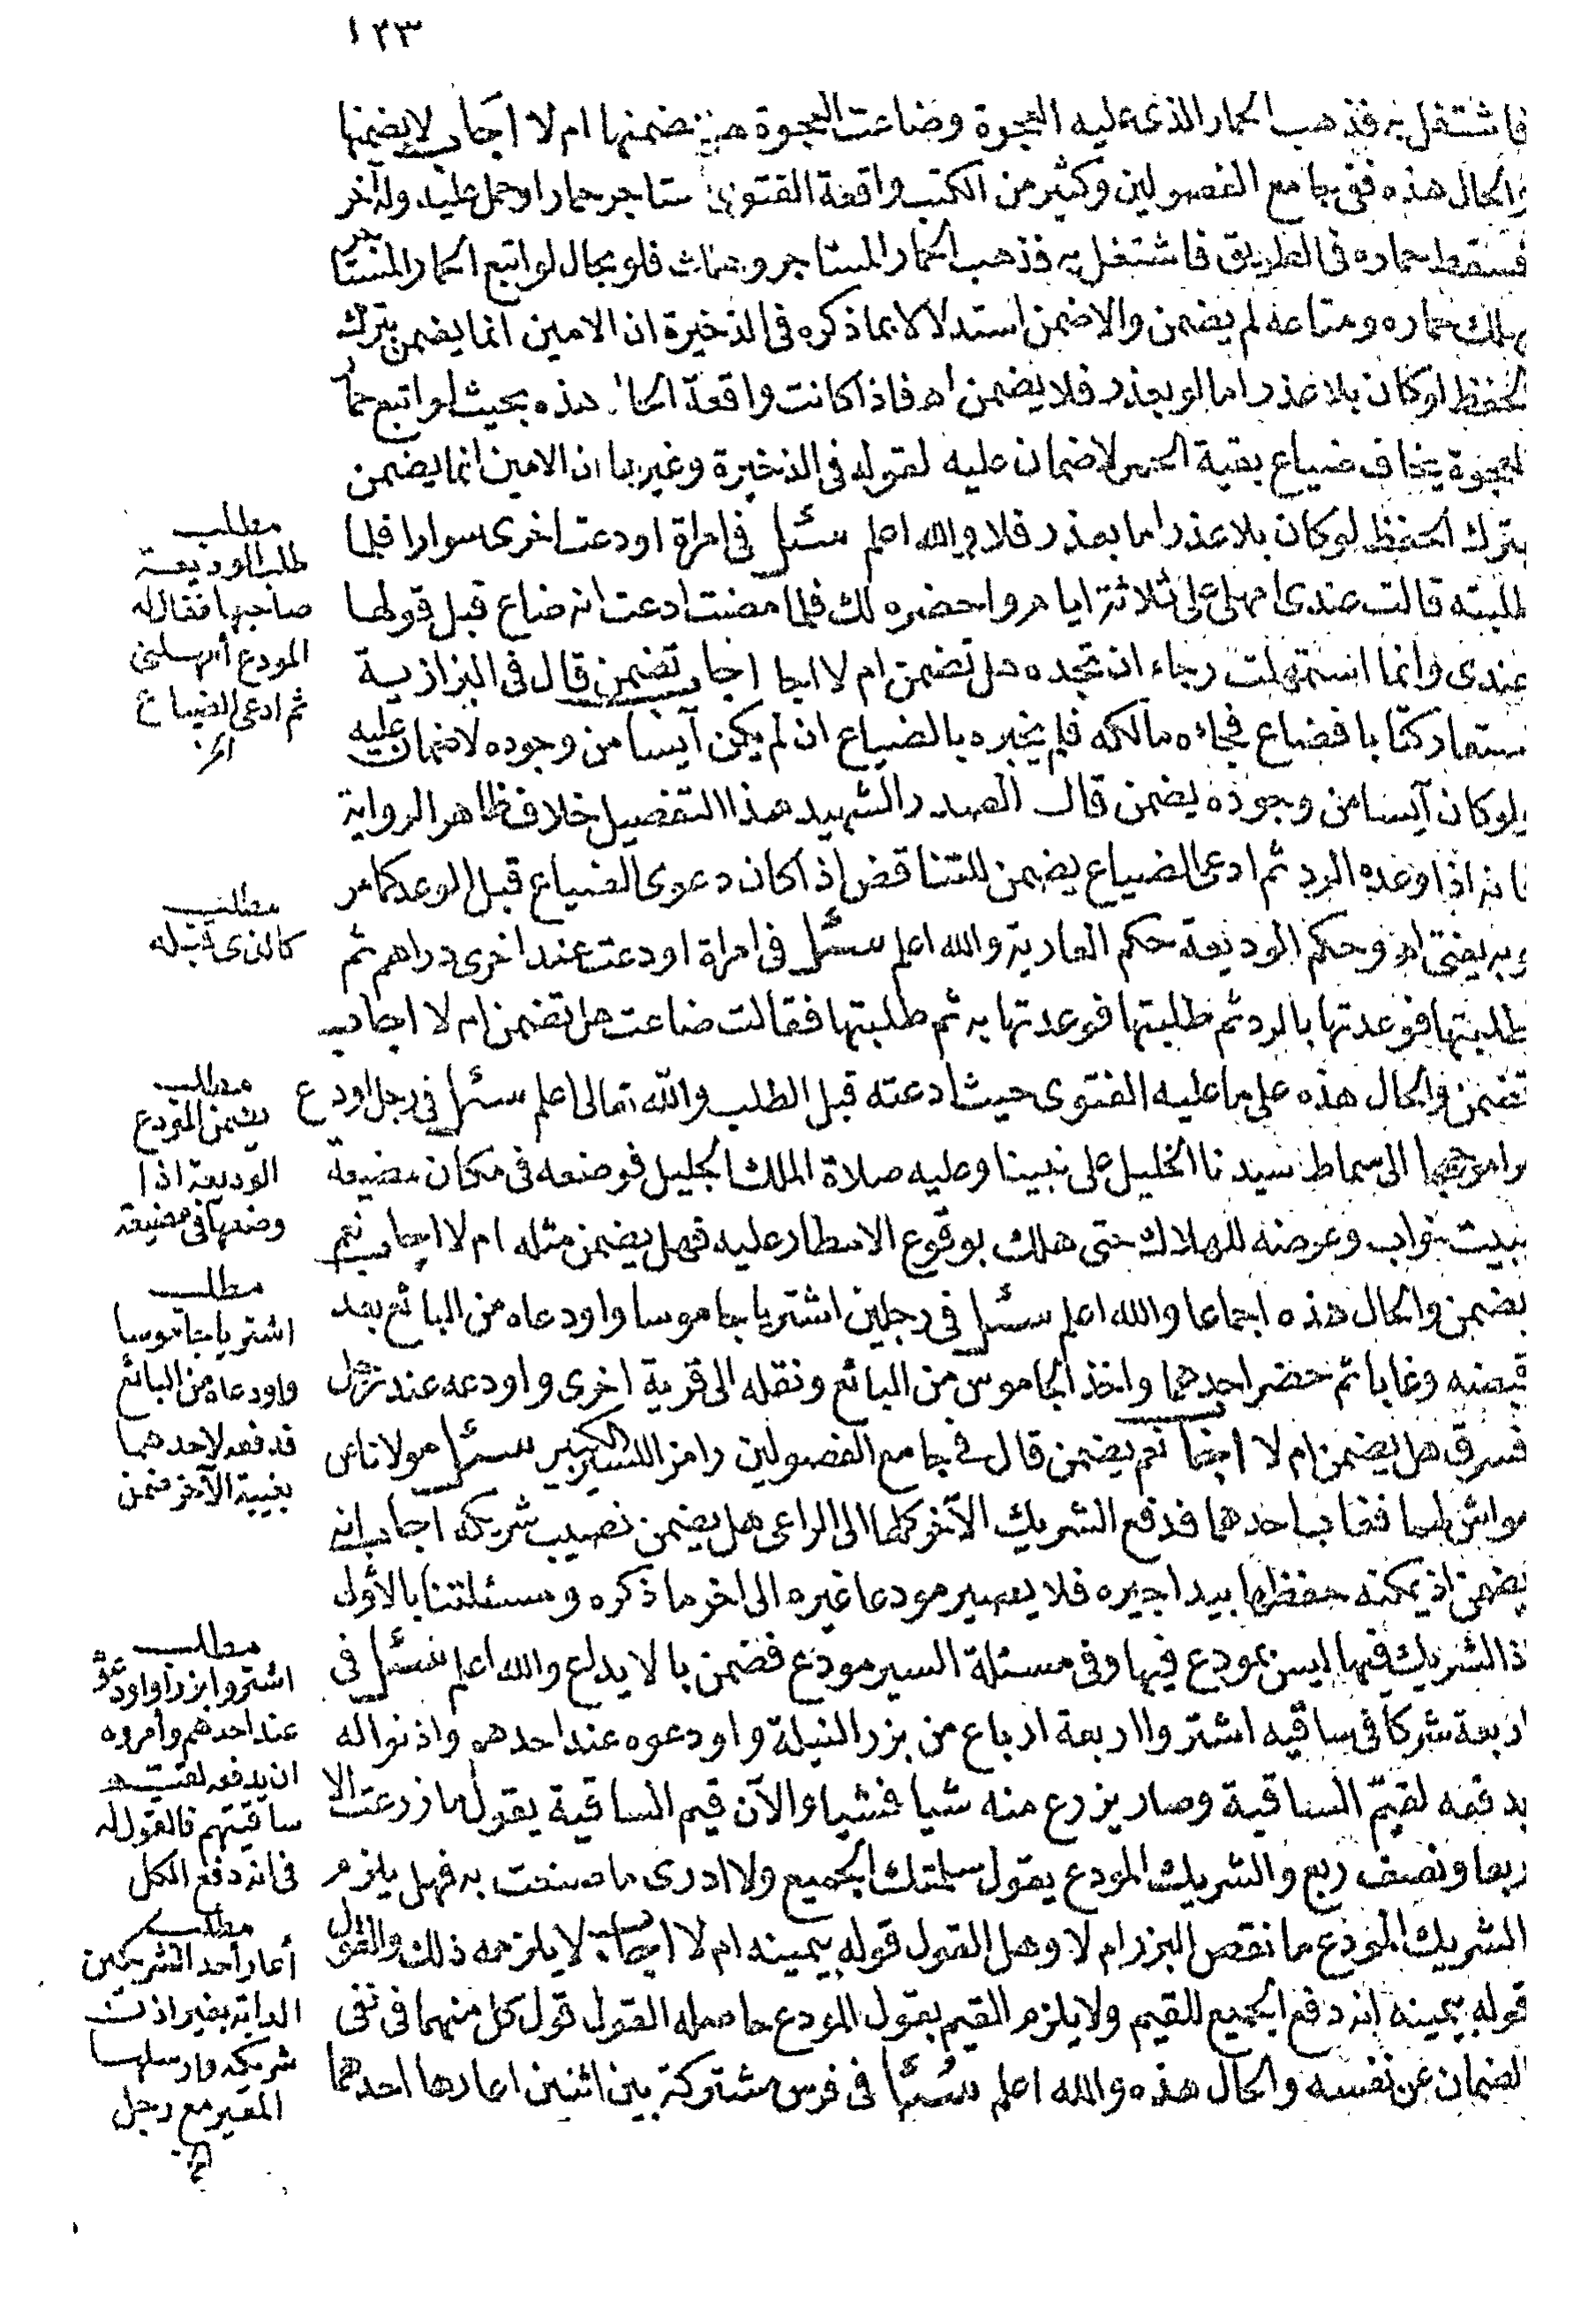 ١٢٣
فاشتغل به فذهب الحمار الذى عليه العجوة وضاعت العجوة هل يضمنها ام لا اجاب لا يضمنها
والحال هذه ففى جامع الفصولين وكثير من الكتب واقعة الفتوى استاجر حمارا وحمل عليه وله آخر
فسقط حماره فى الطريق فاشتغل به فذهب الحمار المستاجر وهلك فلو بحال لو اتبع الحمار المستاجر
يهلك حماره ومتاعه لم يضمن والا ضمن استدلالا بما ذكره فى الذخيرة ان الامين انما يضمن بترك
الحفظ لو كان بلا عذر اما لو بعذر فلا يضمن اه فاذا كانت واقعة الحال هذه بحيث لو اتبع حمار
العجوة يخاف ضياع بقية الحمر لا ضمان عليه لقوله فى الذخيرة وغيرها ان الامين انما يضمن
بترك الحفظ لو كان بلا عذر اما بعذر فلا والله اعلم سئل فى امراة اودعت اخرى سوارا فلما
طلبته قالت عندى امهلى على ثلاثة ايام واحضره لك فلما مضت ادعت انه ضاع قبل قولها
عندى وانما استمهلت رجاء ان تجده هل تضمن ام لا اجاب تضمن قال فى البزازية
استعار كتابا فضاع فجاءه مالكه فلم يخبره بالضياع ان لم يكن آيسا من وجوده لا ضمان عليه
ولو كان آيسا من وجوده يضمن قال الصدر الشهيد هذا التفصيل خلاف ظاهر الرواية
فانه اذا وعده الرد ثم ادعى الضياع يضمن للتناقض اذا كان دعوى الضياع قبل الوعد كما مر
وبه يفتى اه وحكم الوديعة حكم العارية والله اعلم سئل فى امراة اودعت عند اخرى دراهم ثم
طلبتها فوعدتها بالرد ثم طلبتها فوعدتها به ثم طلبتها فقالت ضاعت هل تضمن ام لا اجاب
تضمن والحال هذه على ما عليه الفتوى حيث ادعته قبل الطلب والله تعالى اعلم سئل فى رجل اودع
الى سماط سيدنا الخليل على نبينا وعليه صلاة الملك الجليل فوضعه فى مكان مضيعة
ببيت خراب وعرضه للهلاك حتى هلك بوقوع الامطار عليه فهل يضمن مثله ام لا اجاب نعم
يضمن والحال هذه اجماعا والله اعلم سئل فى رجلين اشتريا جاموسا واودعاه من البائع بعد
قبضه وغابا ثم حضر احدهما واخذ الجاموس من البائع ونقله الى قرية اخرى واودعه عند رجل
فسرق هل يضمن ام لا اجاب نعم يضمن قال فى جامع الفصولين رامزا للسير الكبير سئل مولانا عن
مواش لهما فغاب احدهما فدفع الشريك الآخر كلها الى الراعى هل يضمن نصيب شريكه اجاب انه
يضمن اذ يمكنه حفظها بيد اجيره فلا يصير مودعا غيره الى اخر ما ذكره ومسئلتنا بالأولى
اذ الشريك فيها ليس بمودع فيها وفى مسئلة السير مودع فضمن بالايداع والله اعلم سئل فى
اربعة شركا فى ساقيه اشتروا اربعة ارباع من بزر النيلة واودعوه عند احدهم واذنوا له
بدفعه لقيم الساقية وصار يزرع منه شيا فشيا والآن قيم الساقية يقول ما زرعت الا
ربعا ونصف ربع والشريك المودع يقول سلمتك الجميع ولا ادرى ما صنعت به فهل يلزم
الشريك المودع ما نقص البزر ام لا وهل القول قوله بيمينه ام لا اجاب لا يلزمه ذلك والقول
قوله بيمينه انه دفع الجميع للقيم ولا يلزم القيم بقول المودع حاصله القول قول كل منهما فى نفى
الضمان عن نفسه والحال هذه والله اعلم سئل فى فرس مشتركة بين اثنين اعارها احدهما
مطلب
طلب الوديعة
صاحبها فقال له
المودع أمهلنى
ثم ادعى الضياع
الخ
مطلب
كالذى قبله
مطلب
يضمن المودع
الوديعة اذا
وضعها فى مضيعة
مطلب
اشتريا جاموسا
واودعاه من البائع
فدفعه لاحدهما
بغيبة الآخر ضمن
مطلب
اشتروا بزرا واودعوه
عند احدهم وأمروه
ان يدفعه لقيم
ساقيتهم فالقول له
فى انه دفع الكل
مطلب
أعار أحد الشريكين
الدابة بغير اذن
شريكه وارسلها
المعير مع رجل
الخ